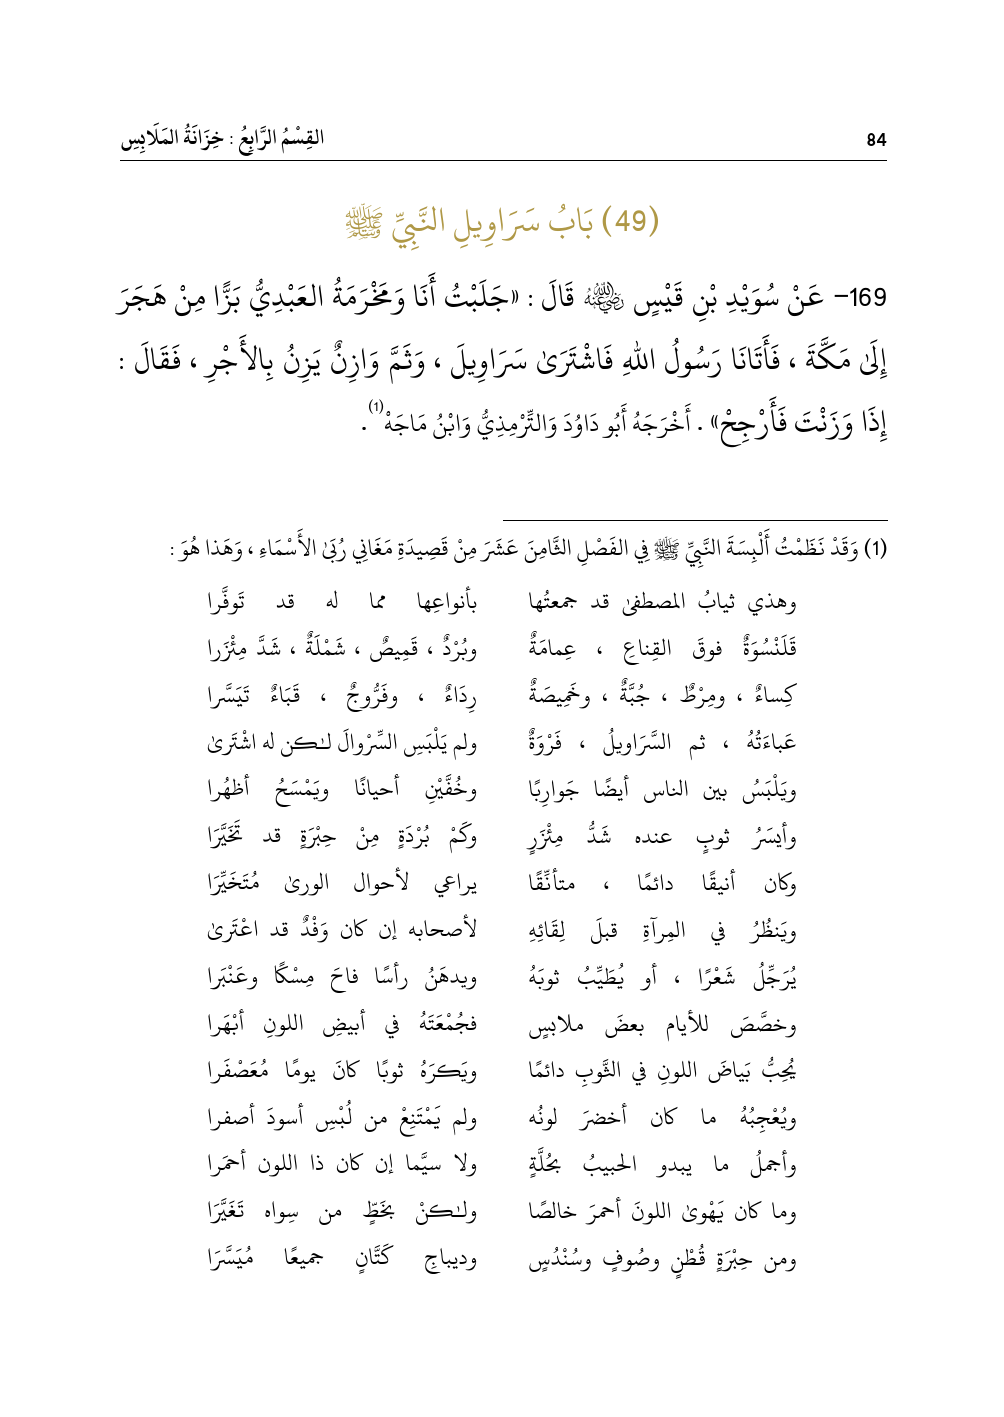 84 القِسْمُ الرَّابِعُ : خِزَانَةُ المَلَابِسِ
(49) بَابُ سَرَاوِيلِ النَّبِيِّ ﷺ
169- عَنْ سُوَيْدِ بْنِ قَيْسٍ رَضِيَ اللهُ عَنْهُ قَالَ : «جَلَبْتُ أَنَا وَمَخْرَمَةُ العَبْدِيُّ بَزًّا مِنْ هَجَرَ
إِلَىٰ مَكَّةَ ، فَأَتَانَا رَسُولُ اللهِ فَاشْتَرَىٰ سَرَاوِيلَ ، وَثَمَّ وَازِنٌ يَزِنُ بِالأَجْرِ ، فَقَالَ :
إِذَا وَزَنْتَ فَأَرْجِحْ» . أَخْرَجَهُ أَبُو دَاوُدَ وَالتِّرْمِذِيُّ وَابْنُ مَاجَهْ(1) .
(1) وَقَدْ نَظَمْتُ أَلْبِسَةَ النَّبِيِّ ﷺ فِي الفَصْلِ الثَّامِنَ عَشَرَ مِنْ قَصِيدَةِ مَغَانِي رُبَىٰ الأَسْمَاءِ ، وَهَذا هُوَ :
وهذي ثيابُ المصطفىٰ قد جمعتُها بأنواعِها مما له قد تَوفَّرا
قَلَنْسُوَةٌ فوقَ القِناعِ ، عِمامَةٌ وبُرْدٌ ، قَمِيصٌ ، شَمْلَةٌ ، شَدَّ مِئْزَرا
كِساءٌ ، ومِرْطٌ ، جُبَّةٌ ، وخَمِيصَةٌ رِدَاءٌ ، وفَرُّوجٌ ، قَبَاءٌ تَيَسَّرا
عَباءَتُهُ ، ثم السَّرَاويلُ ، فَرْوَةٌ ولم يَلْبَسِ السِّرْوالَ لـٰكن له اشْتَرىٰ
ويَلْبَسُ بين الناس أيضًا جَوارِبًا وخُفَّيْنِ أحيانًا ويَمْسَحُ أظهُرا
وأيسَرُ ثوبٍ عنده شَدُّ مِئْزَرٍ وكَمْ بُرْدَةٍ مِنْ حِبْرَةٍ قد تَخَيَّرَا
وكان أنيقًا دائمًا ، متأنِّقًا يراعي لأحوال الورىٰ مُتَخَيِّرَا
ويَنظُرُ في المِرآةِ قبلَ لِقَائِهِ لأصحابه إن كان وَفْدٌ قد اعْتَرىٰ
يُرَجِّلُ شَعْرًا ، أو يُطَيِّبُ ثوبَهُ ويدهَنُ رأسًا فاحَ مِسْكًا وعَنْبَرا
وخصَّصَ للأيام بعضَ ملابسٍ فجُمْعَتَهُ في أبيضِ اللونِ أبْهَرا
يُحِبُّ بَياضَ اللونِ في الثَّوبِ دائمًا ويَكرَهُ ثوبًا كانَ يومًا مُعَصْفَرا
ويُعْجِبُهُ ما كان أخضرَ لونُه ولم يَمْتَنِعْ من لُبْسِ أسودَ أصفرا
وأجملُ ما يبدو الحبيبُ بحُلَّةٍ ولا سيَّما إن كان ذا اللون أحمَرا
وما كان يَهْوىٰ اللونَ أحمرَ خالصًا ولـٰكنْ بخَطٍّ من سِواه تَغَيَّرَا
ومن حِبْرَةٍ قُطْنٍ وصُوفٍ وسُنْدُسٍ وديباجِ كَتَّانٍ جميعًا مُيَسَّرَا